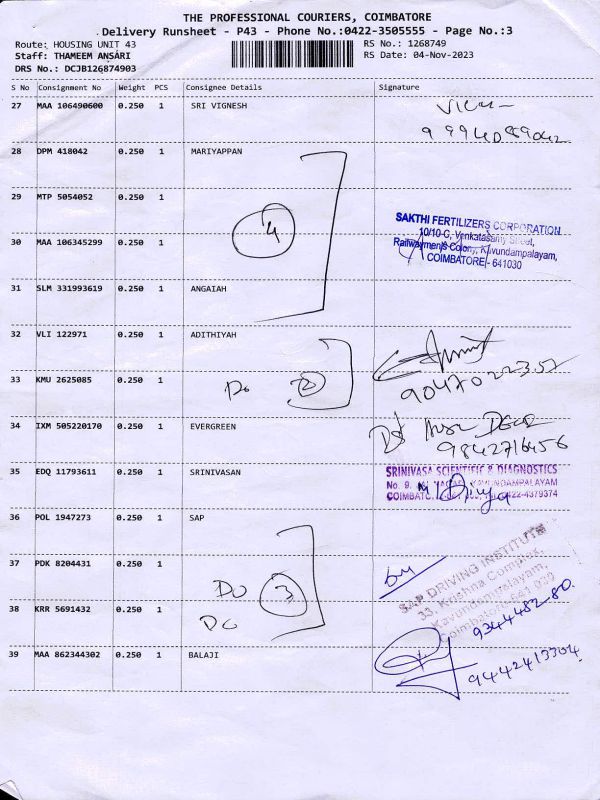 THE PROFESSIONAL COURIERS, COIMBATORE
Delivery Runsheet - P43 - Phone No.:0422-3505555 - Page No.:3
Route: HOUSING UNIT 43 RS No.: 1268749
Staff: THAMEEM ANSARI RS Date: 04-Nov-2023
DRS No.: DCJB126874903
S No Consignment No Weight PCS Consignee Details Signature
27 MAA 106490600 0.250 1 SRI VIGNESH
28 DPM 418042 0.250 1 MARIYAPPAN
29 MTP 5054052 0.250 1
4
SAKTHI FERTILIZERS CORPORATION
10/10-C, Venkatasamy Street,
30 MAA 106345299 0.250 1
Railwaymen's Colony, Kavundampalayam,
COIMBATORE - 641030
31 SLM 331993619 0.250 1 ANGAIAH
32 VLI 122971 0.250 1 ADITHIYAH
33 KMU 2625085 0.250 1 Do 2
9047022357
34 IXM 505220170 0.250 1 EVERGREEN
9842716456
35 EDQ 11793611 0.250 1 SRINIVASAN
SRINIVASA SCIENTIFIC & DIAGNOSTICS
No. 9, KAVUNDAMPALAYAM
0422-4379374
36 POL 1947273 0.250 1 SAP
37 PDK 8204431 0.250 1
Do 3
SAP DRIVING INSTITUTE
33, Krishna Complex,
Kavundampalayam,
Coimbatore-641 030
38 KRR 5691432 0.250 1 Do
9344482-80
39 MAA 862344302 0.250 1 BALAJI
9442413304